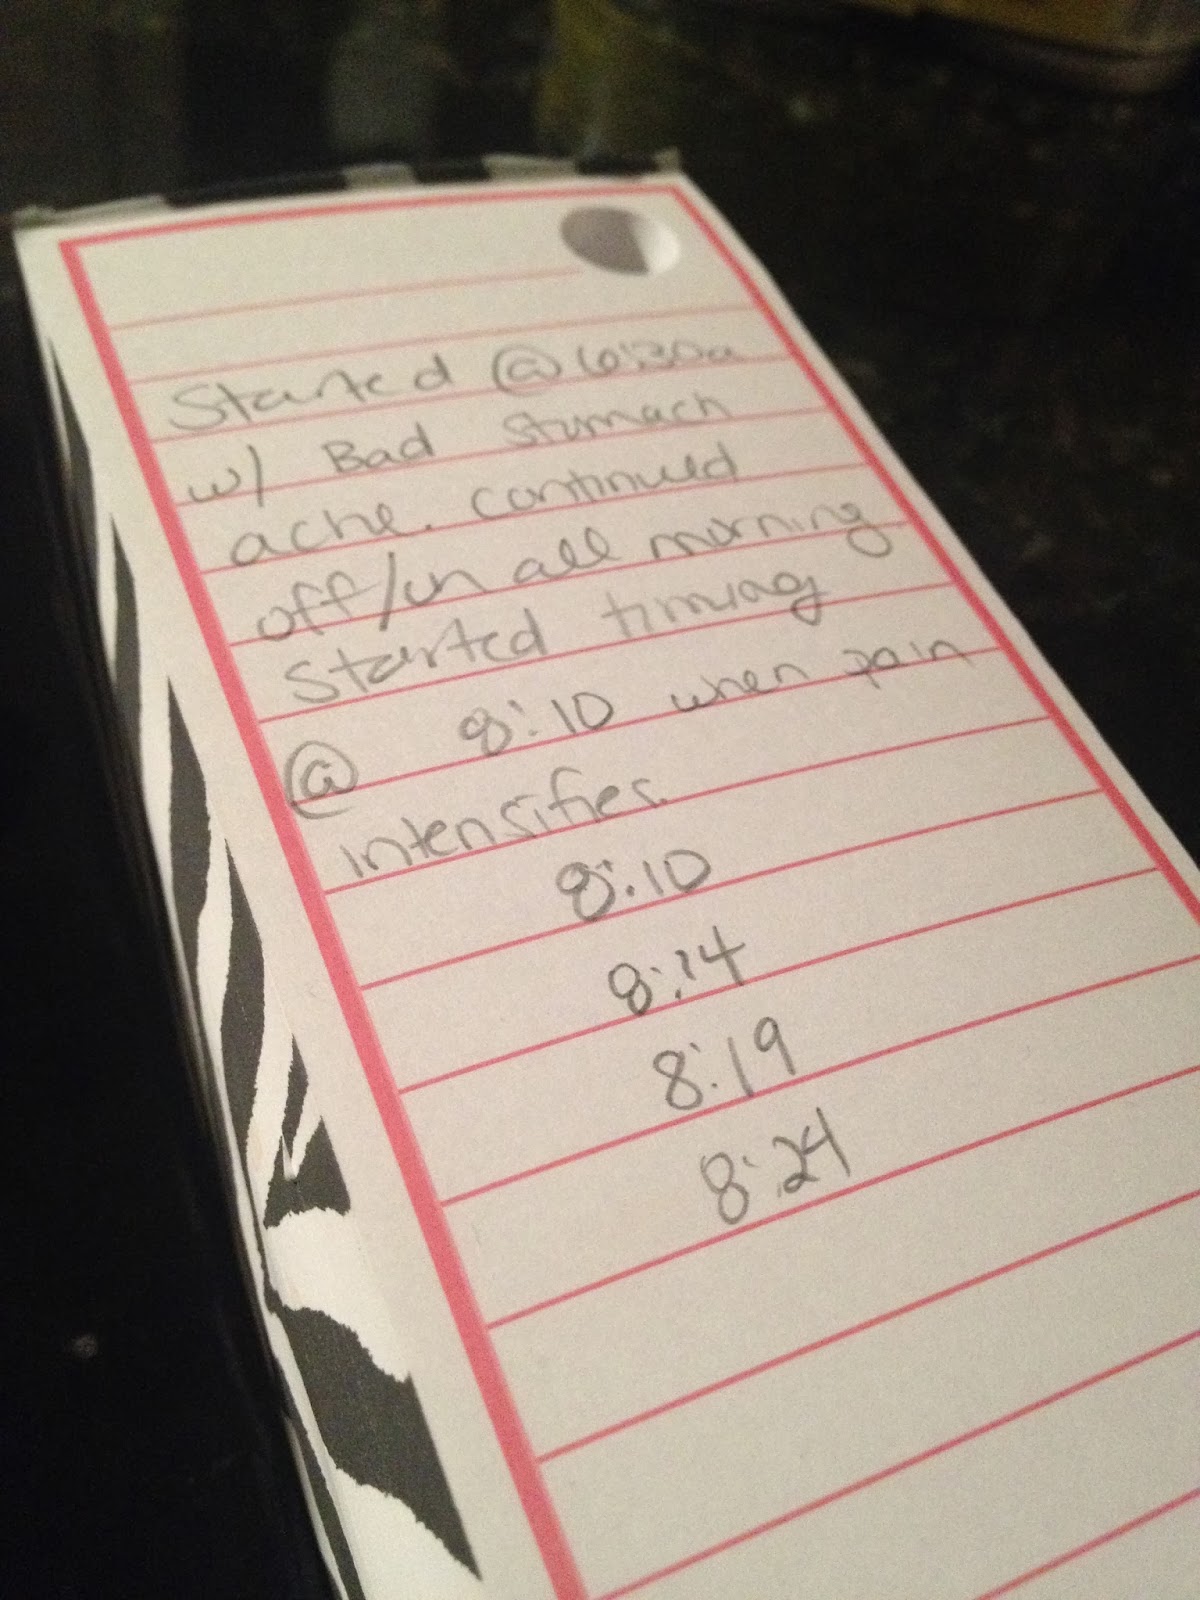 Started @ 6:30a
w/ Bad stomach
ache. continued
off/on all morning
Started timing
@ 8:10 when pain
intensifies.
8:10
8:14
8:19
8:24